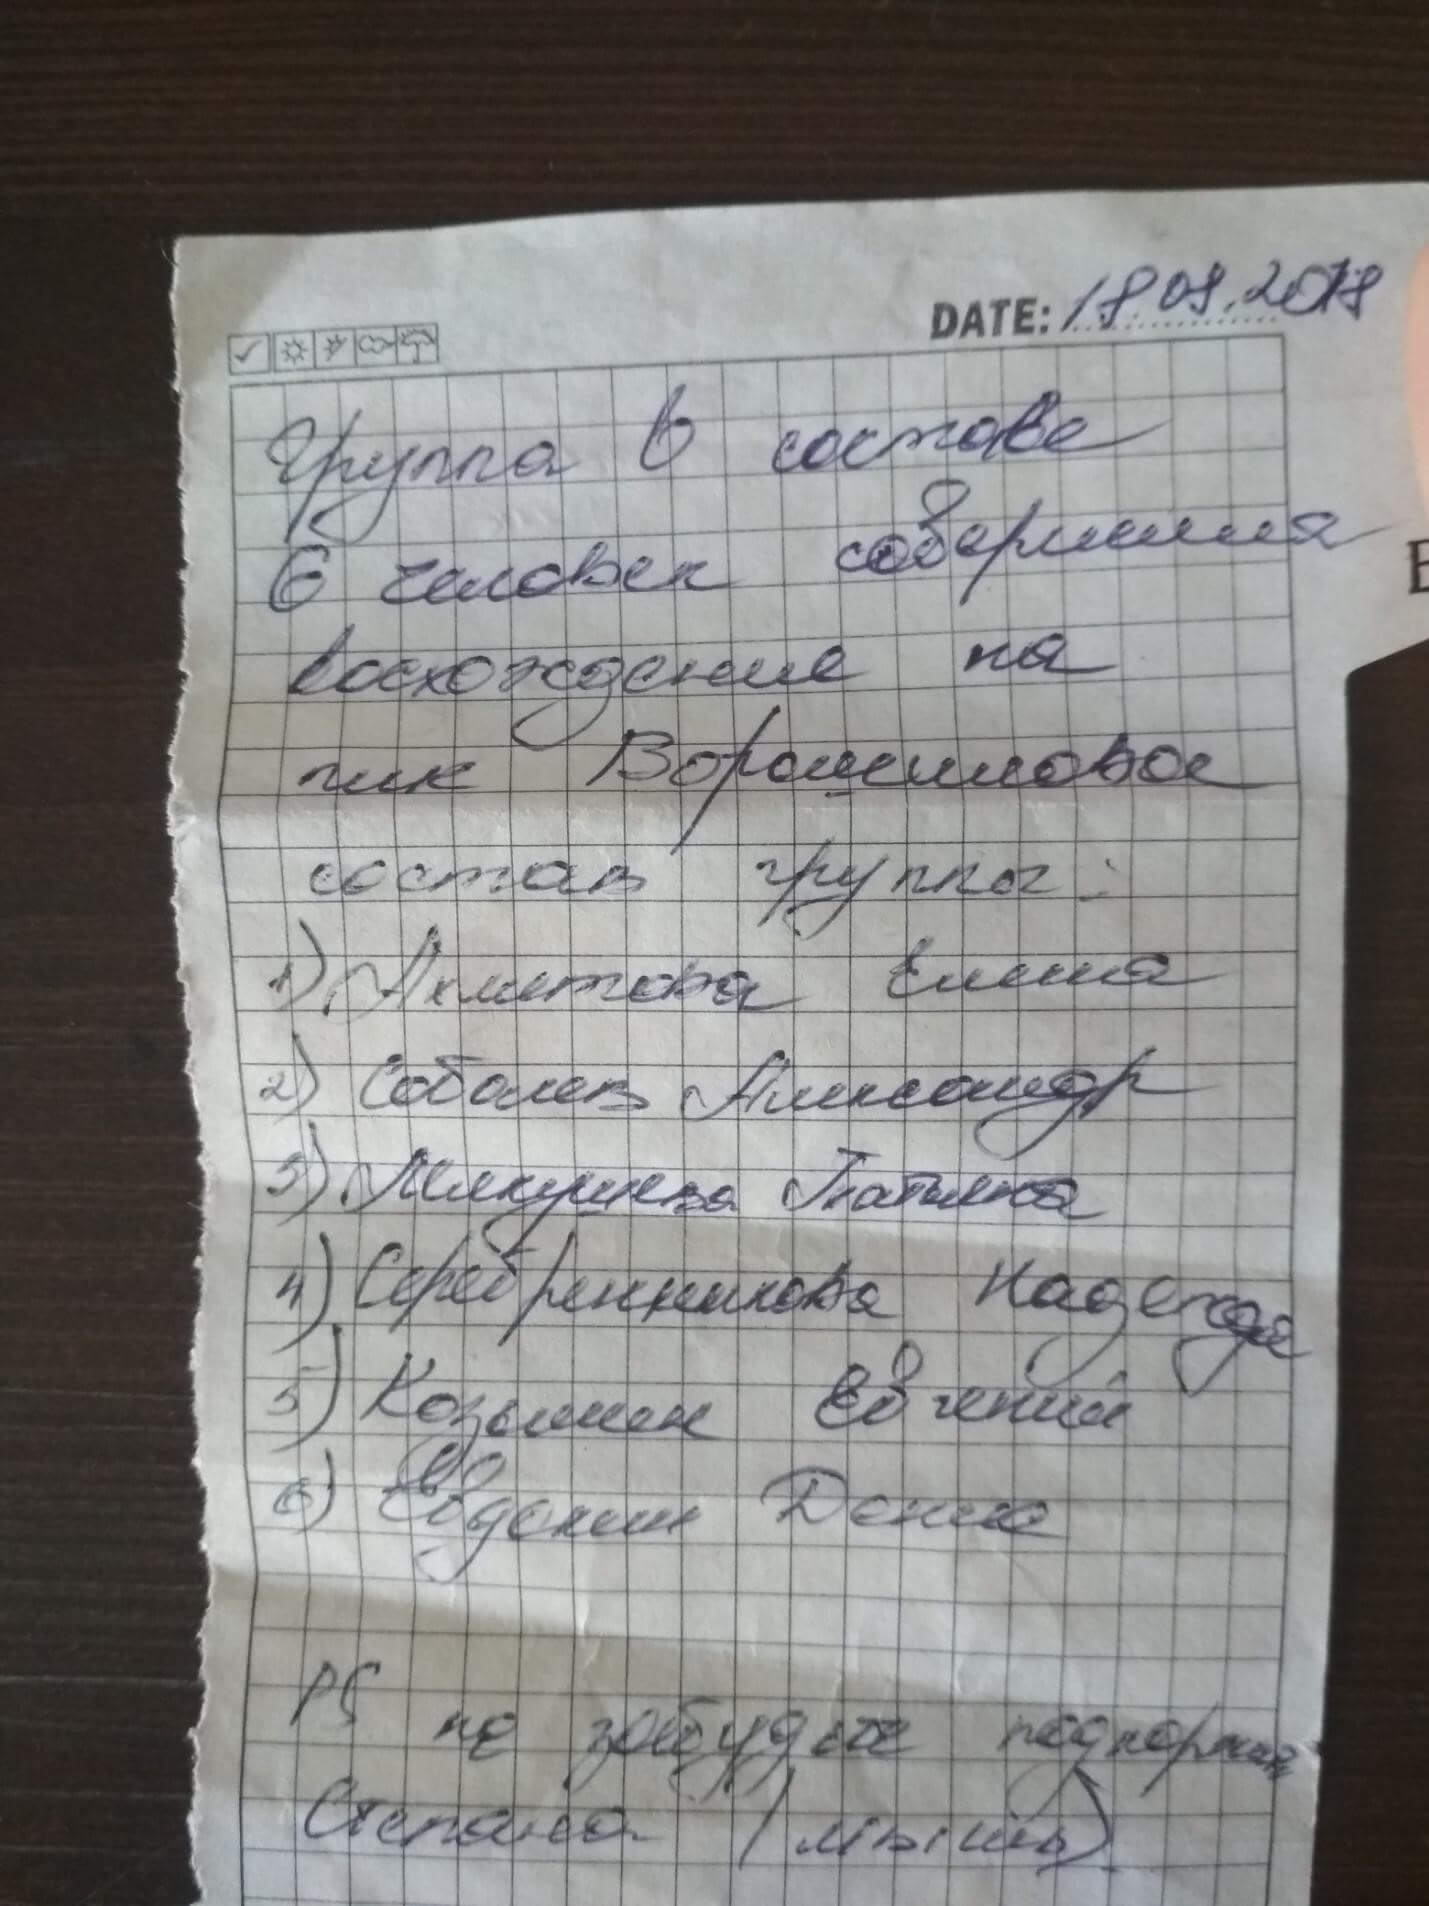 DATE: 18.08.2018
Группа в составе
6 человек совершила
восхождение на
пик Ворошилова
состав группы:
1) Ахметова Елена
2) Соболев Александр
3) Мекушева Татьяна
4) Серебренникова Надежда
5) Козьмин Евгений
6) Евдокин Денис
PS не забудьте подкормить
Степана (мышь)